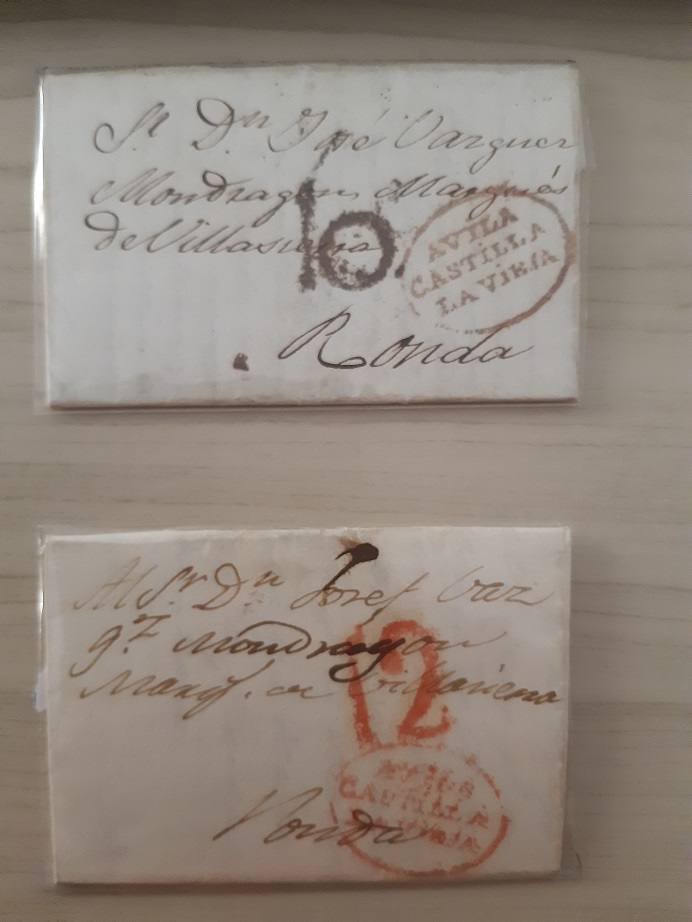 Sr. Dn. José Vazquez
Mondragon, Marqués
de Villasierra
10.
AVILA
CASTILLA
LA VIEJA
Ronda
Al Sr. Dn Josef Vaz
qz Mondragon
Marqs. de Villasierra
12
CASTILLA
LA VIEJA
Ronda